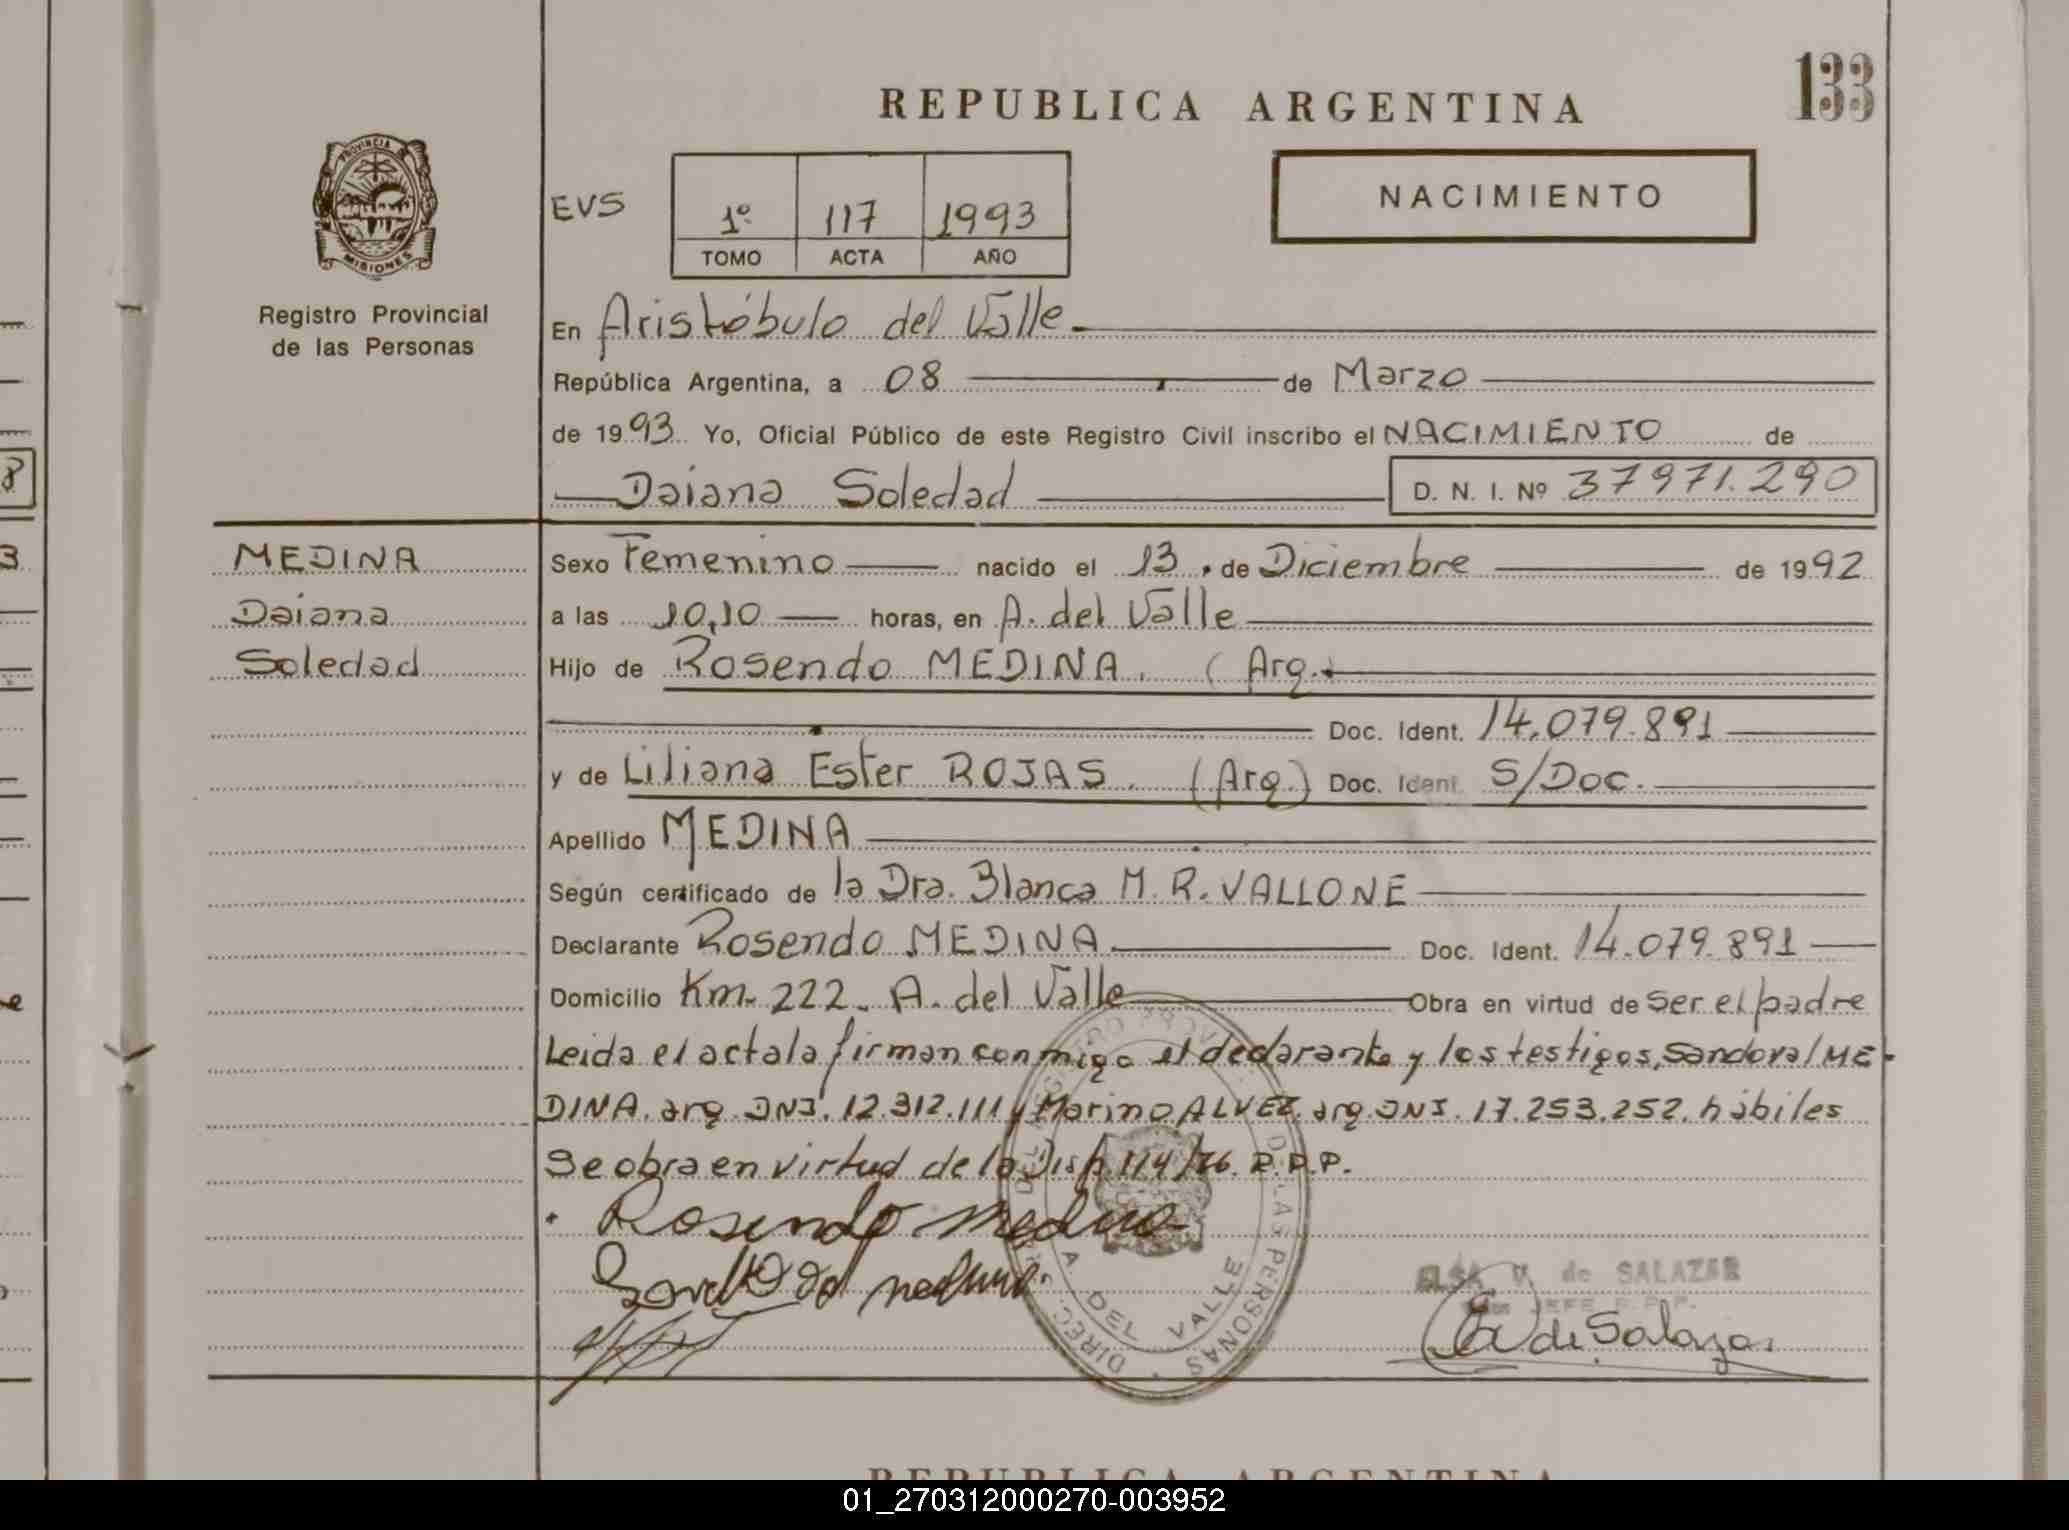 133
REPUBLICA ARGENTINA
NACIMIENTO
PROVINCIA DE
MISIONES
Registro Provincial
de las Personas
EVS
1º 117 1993
TOMO ACTA AÑO
En Aristóbulo del Valle
República Argentina, a 08 de Marzo
de 1993 Yo, Oficial Público de este Registro Civil inscribo el NACIMIENTO de
Daiana Soledad D. N. I. Nº 37971.290
MEDINA
Daiana
Soledad
Sexo Femenino nacido el 13 de Diciembre de 1992
a las 10,10 horas, en A. del Valle
Hijo de Rosendo MEDINA. (Arg.
Doc. Ident. 14.079.891
y de Liliana Ester ROJAS. (Arg.) Doc. Ident. S/Doc.
Apellido MEDINA
Según certificado de la Dra. Blanca M. R. VALLONE
Declarante Rosendo MEDINA Doc. Ident. 14.079.891
Domicilio Km. 222. A. del Valle Obra en virtud de ser el padre
Leida el acta la firman conmigo el declarante y los testigos, Sandoval ME-
DINA. arg. DNI. 12.312.111 y Marino ALVEZ. arg. DNI. 17.253.252. hábiles
Se obra en virtud de la Disp. 114/76. R.P.P.
Rosendo Medina
medina
ELSA V. de SALAZAR
JEFE R.P.P.
de Salazar
DE LAS PERSONAS
A. DEL VALLE
DIREC.
REPUBLICA ARGENTINA
01_270312000270-003952